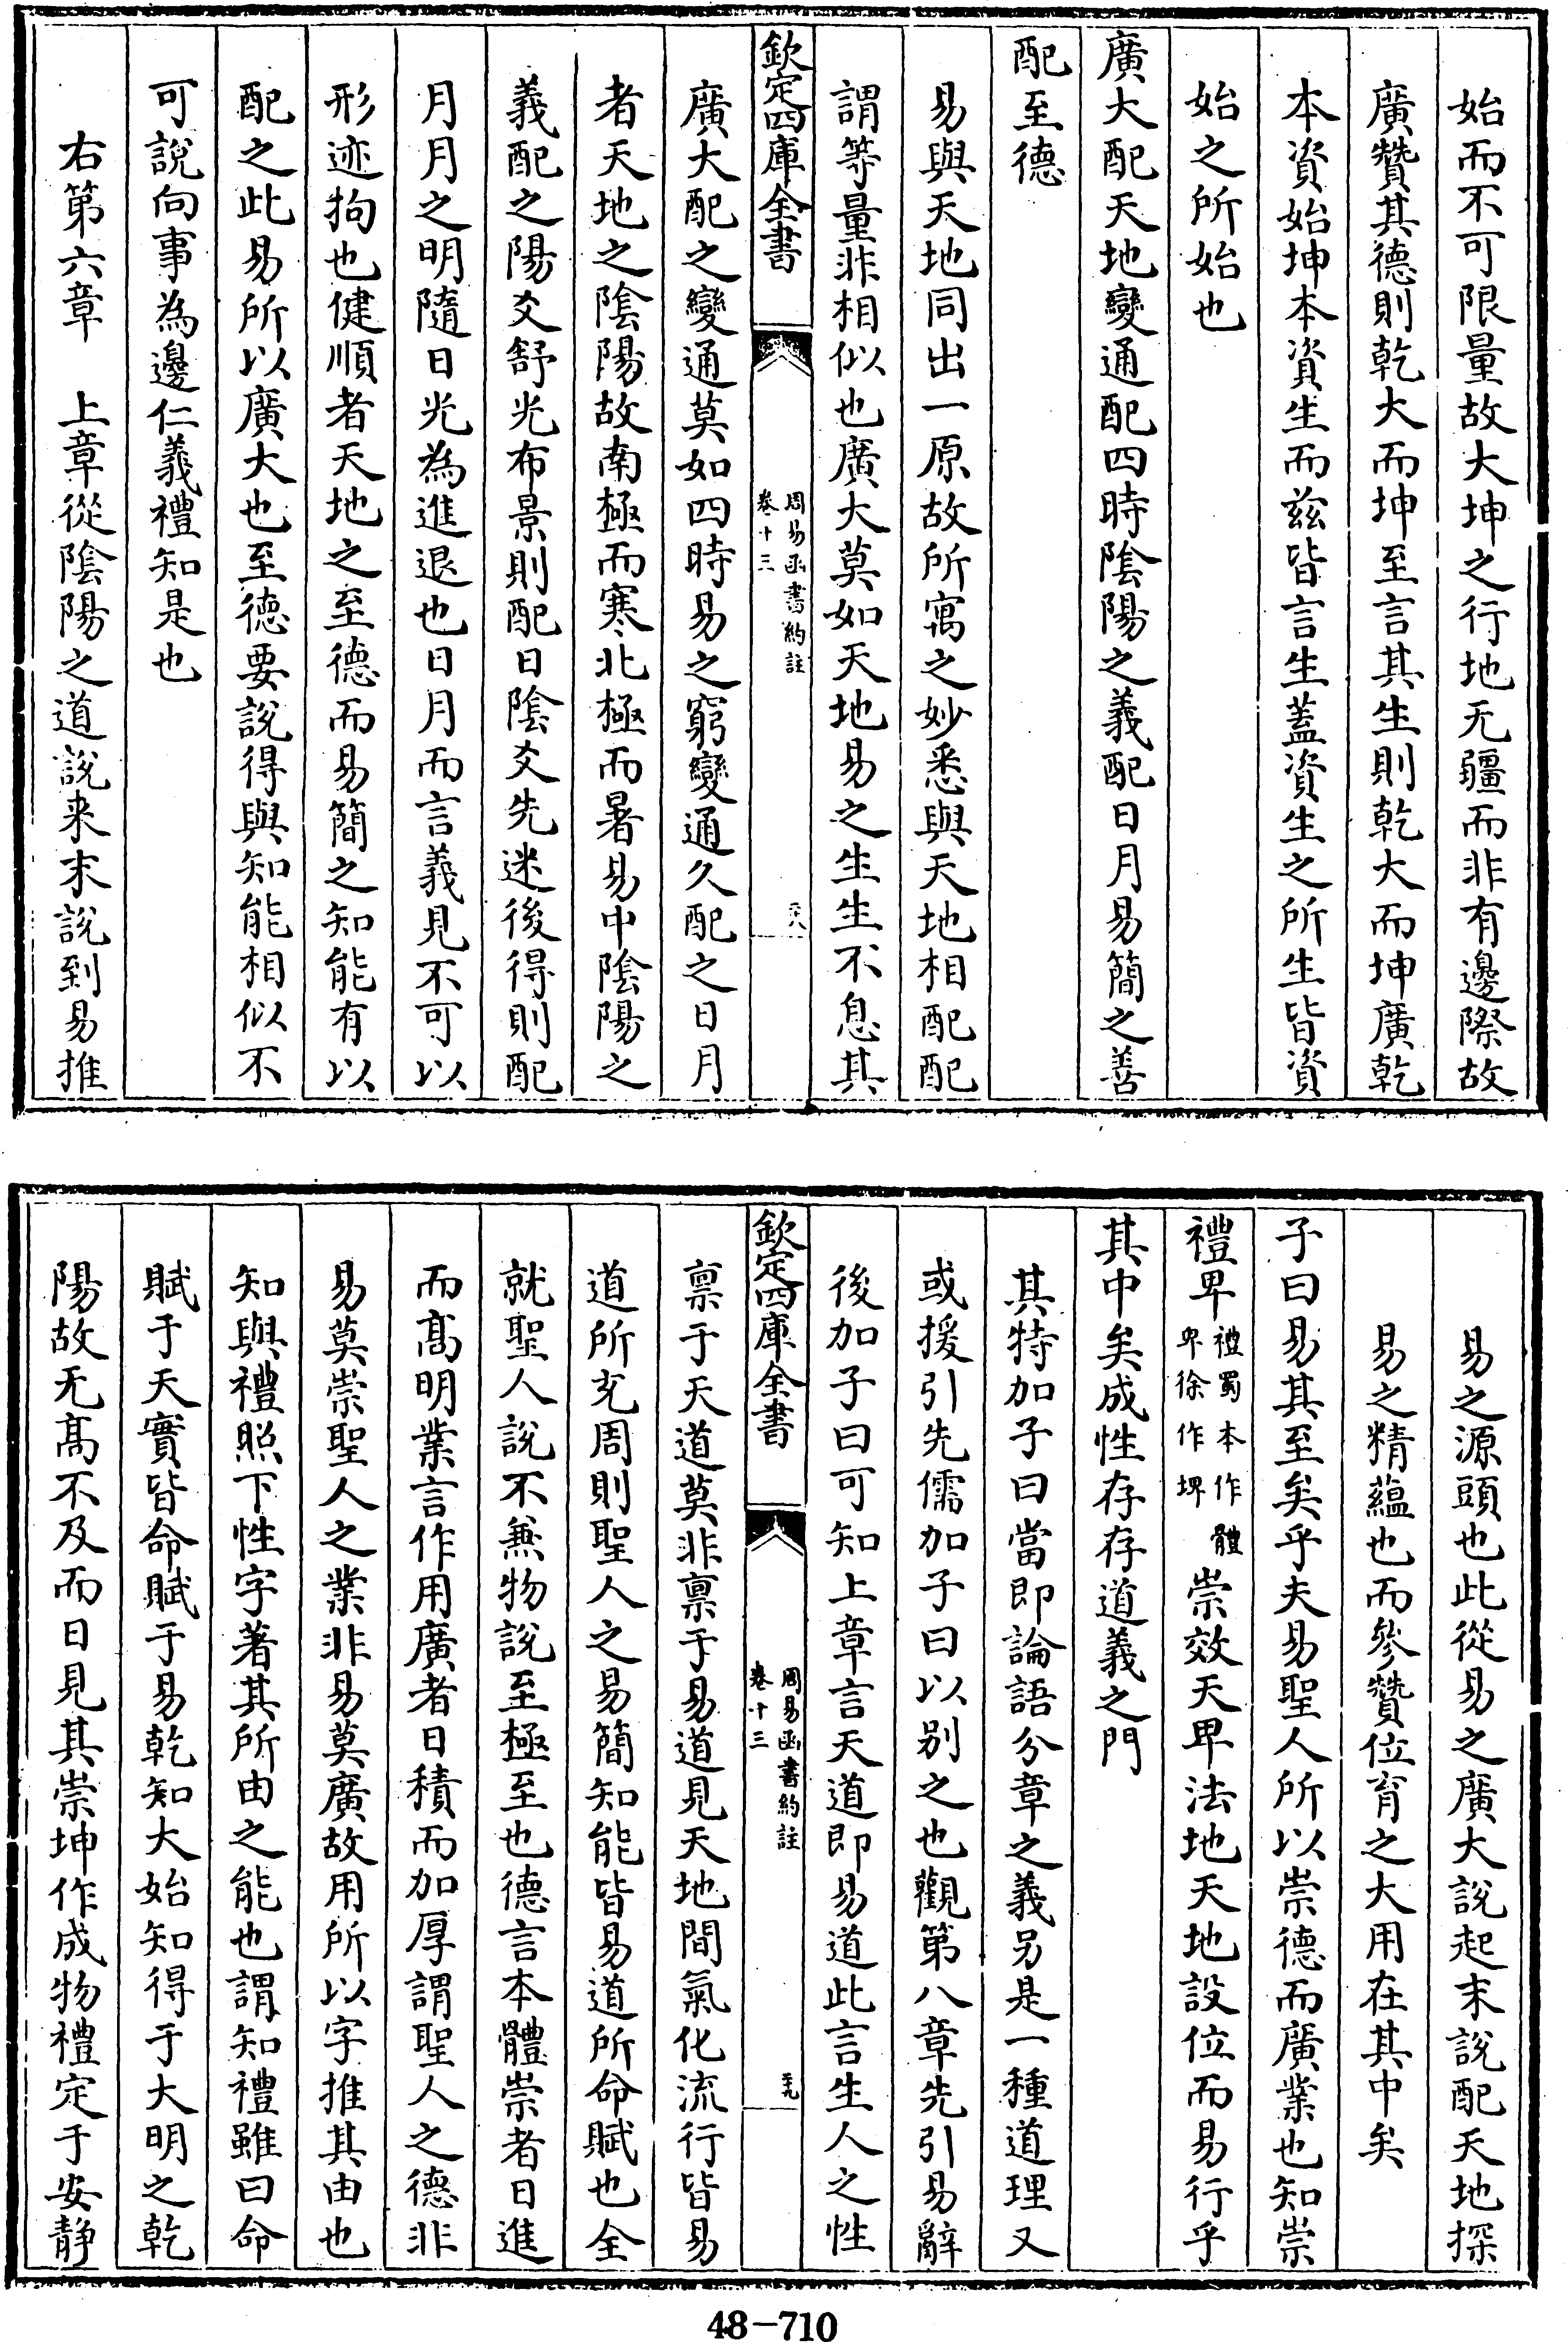 始而不可限量故大坤之行地无疆而非有邊際故
廣贊其德則乾大而坤至言其生則乾大而坤廣乾
本資始坤本資生而兹皆言生蓋資生之所生皆資
始之所始也
廣大配天地變通配四時陰陽之義配日月易簡之善
配至德
易與天地同出一原故所寓之妙悉與天地相配配
謂等量非相似也廣大莫如天地易之生生不息其
欽定四庫全書
周易函書約註
卷十三
二十八
廣大配之變通莫如四時易之窮變通久配之日月
者天地之陰陽故南極而寒北極而暑易中陰陽之
義配之陽爻舒光布景則配日陰爻先迷後得則配
月月之明隨日光為進退也日月而言義見不可以
形迹拘也健順者天地之至德而易簡之知能有以
配之此易所以廣大也至德要說得與知能相似不
可說向事為邊仁義禮知是也
右第六章　上章從陰陽之道說来末說到易推
易之源頭也此從易之廣大說起末說配天地探
易之精蘊也而參贊位育之大用在其中矣
子曰易其至矣乎夫易聖人所以崇德而廣業也知崇
禮卑禮蜀本作體卑徐作埤崇效天卑法地天地設位而易行乎
其中矣成性存存道義之門
其特加子曰當即論語分章之義另是一種道理又
或援引先儒加子曰以别之也觀第八章先引易辭
後加子曰可知上章言天道即易道此言生人之性
欽定四庫全書
周易函書約註
卷十三
二十九
禀于天道莫非禀于易道見天地間氣化流行皆易
道所充周則聖人之易簡知能皆易道所命賦也全
就聖人說不兼物說至極至也德言本體崇者日進
而高明業言作用廣者日積而加厚謂聖人之德非
易莫崇聖人之業非易莫廣故用所以字推其由也
知與禮照下性字著其所由之能也謂知禮雖曰命
賦于天實皆命賦于易乾知大始知得于大明之乾
陽故无高不及而日見其崇坤作成物禮定于安静
48-710